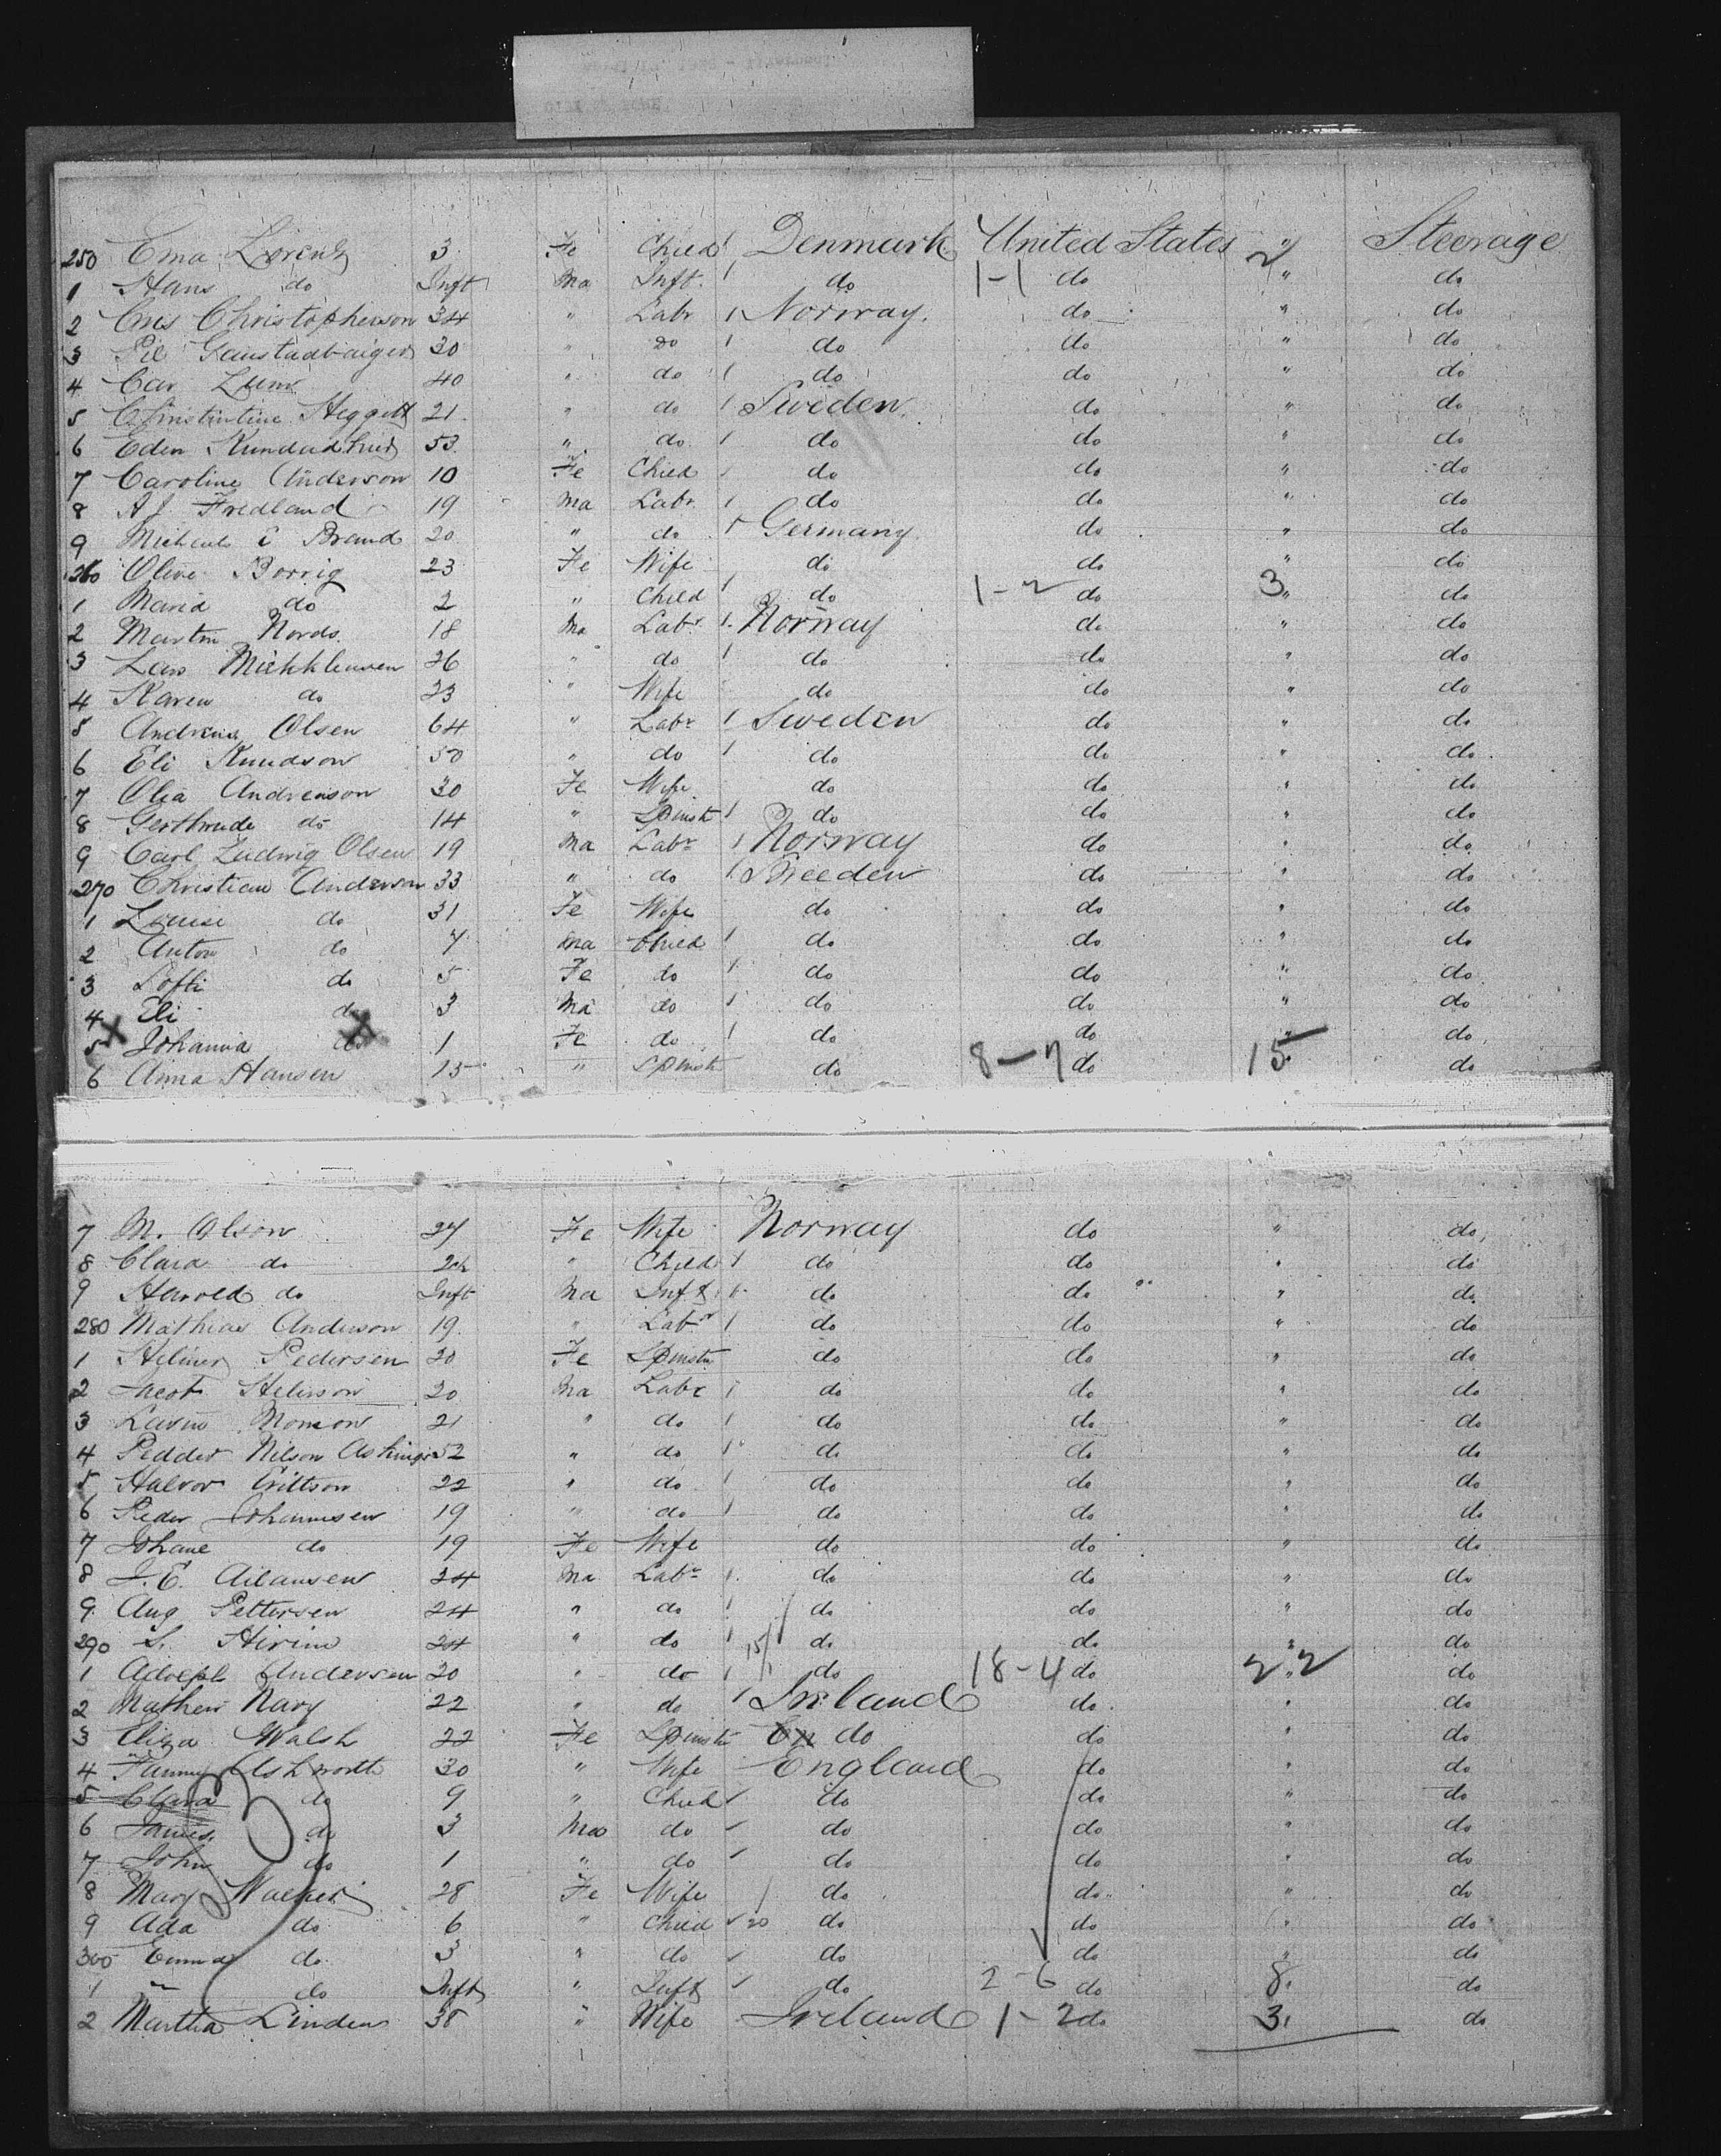 250 Ema Lorentz 3 Fe Child / Denmark United States 2 " Steerage
1 Hans do Inft Ma Inft. / do 1-1 do " do
2 Cris Christophenson 34 " Labr / Norway. do " do
3 30 " Do / do do " do
4 Car 40 " do / do do " do
5 21 " do / Sweden. do " do
6 Eden 53 " do / do do " do
7 Caroline Anderson 10 Fe Child / do do " do
8 A J Fredland 19 Ma Labr / do do " do
9 Brand 20 " do / Germany do " do
260 Olive Borrig 23 Fe Wife do do " do
1 Maria do 2 " Child / do 1-2 do 3 " do
2 Martin Nords 18 Ma Labr / Norway do " do
3 Lars 26 " do / do do " do
4 Karen do 23 " Wife do do " do
5 Andreas Olsen 64 " Labr / Sweden do " do
6 Eli Knudson 50 " do / do do " do
7 Olea Andrenson 30 Fe Wife do do " do
8 Gerthrude do 14 " Spinstr / do do " do
9 Carl Ludwig Olsen 19 Ma Labr / Norway do " do
270 Christian Anderson 33 " do / Sweeden do " do
1 Louise do 31 Fe Wife do do " do
2 Anton do 7 Ma Child / do do " do
3 Softi do 5 Fe do / do do " do
4 Eli do 3 Ma do / do do " do
x 5 Johanna do x 1 Fe do / do do " do
6 Anna Hansen 15 " Spinstr do 8-7 do 15 " do
7 M. Olson 27 Fe Wife Norway do " do
8 Clara do " Child / do do " do
9 Harold do Inft Ma Inft / do do " do
280 Mathias Anderson 19 " Labr / do do " do
1 Pedersen 20 Fe Spinstr do do " do
2 Jacob 20 Ma Labr / do do " do
3 Monson 21 " do / do do " do
4 Pedder Nelson 52 " do / do do " do
5 Halvor 22 " do / do do " do
6 Peder Johannesen 19 " do / do do " do
7 Johane do 19 Fe Wife do do " do
8 J. E. 24 Ma Labr / do do " do
9 Aug Pettersen 24 " do / do do " do
290 S. 24 " do / 15/1 do do " do
1 Adolph Andersen 20 " do / do 18-4 do 22 " do
2 Mathew Nary 22 " do / Ireland do " do
3 Eliza Walsh 22 Fe Spinstr En do do " do
4 Fanny Ashworth 30 " Wife England do " do
5 Clara do 9 " Child / do do " do
6 James do 3 Ma do / do do " do
7 John do 1 " do / do do " do
8 Mary Walker 28 Fe Wife / do do " do
9 Ada do 6 " Child / 20 do do " do
300 Emma do 3 " do / do do " do
1 " do Inft " Inft / do 2-6 do 8 " do
2 Martha Linden 38 " Wife Ireland 1-2 do 3 " do